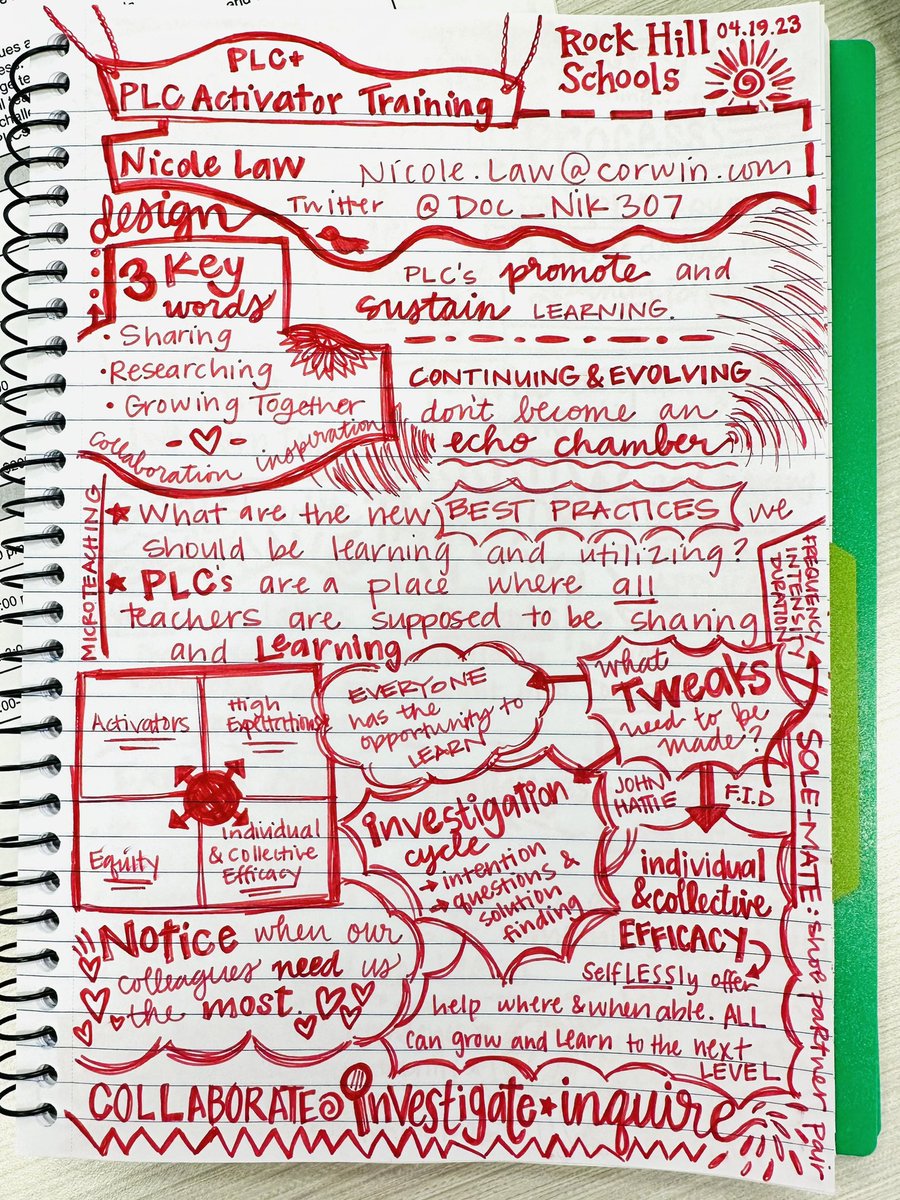 PLC+
PLC Activator Training
Rock Hill
Schools
04.19.23
Nicole Law
Nicole.Law@corwin.com
design
Twitter @Doc_Nik307
3 Key
words
• Sharing
• Researching
• Growing Together
collaboration inspiration
PLC's promote and
sustain LEARNING.
CONTINUING & EVOLVING
don't become an
echo chamber
MICROTEACHING
What are the new BEST PRACTICES we
should be learning and utilizing?
PLC's are a place where all
teachers are supposed to be sharing
and Learning
FREQUENCY
INTENSITY
DURATION
Activators
High
Expectations
Equity
Individual
& Collective
Efficacy
EVERYONE
has the
opportunity to
LEARN
what
TWEAKS
need to be
made?
investigation
cycle
→ intention
→ questions &
solution
finding
JOHN
HATTIE
F.I.D
individual
& collective
EFFICACY
selfLESSly offer
help where & when able. ALL
can grow and learn to the next
LEVEL
SOLE-MATE: shoe partner pair
Notice when our
colleagues need us
the most.
COLLABORATE investigate inquire